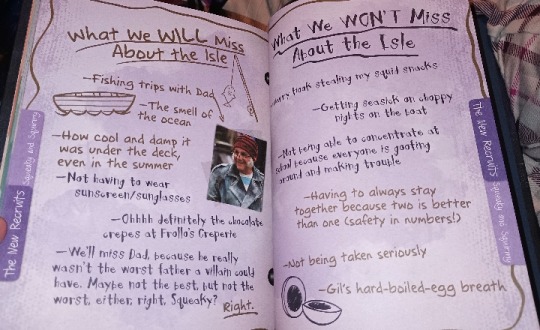 What We WILL Miss
About the Isle
—Fishing trips with Dad
—The smell of
the ocean
—How cool and damp it
was under the deck,
even in the summer
—Not having to wear
sunscreen/sunglasses
—Ohhhh definitely the chocolate
crepes at Frollo's Creperie
—We'll miss Dad, because he really
wasn't the worst father a villain could
have. Maybe not the best, but not the
worst, either, right, Squeaky?
Right.
The New Recruits Squeaky and Squirmy
What We WON'T Miss
About the Isle
Harry Hook stealing my squid snacks
—Getting seasick on choppy
nights on the boat
—Not being able to concentrate at
school because everyone is goofing
around and making trouble
—Having to always stay
together because two is better
than one (safety in numbers!)
—Not being taken seriously
—Gil's hard-boiled-egg breath
The New Recruits Squeaky and Squirmy